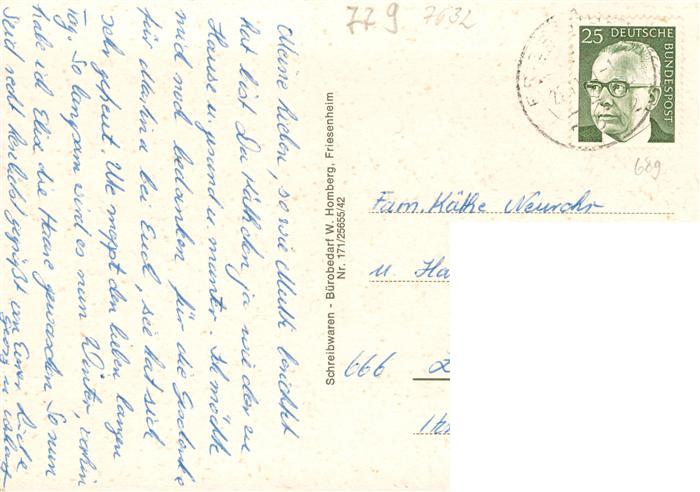 Meine Lieben, so wie Mutti berichtet
hat bist Du Käthchen ja wieder zu
Hause u. gesund u. munter. Ich möchte
mich noch bedanken für die Geschenke
für Martina bei Euch, sie hat sich
sehr gefreut. Uwe moppt den lieben langen
Tag. So langsam wird es nun Winter, vorhin
habe ich Elia die Haare gewaschen. So nun
Seid recht herzlichst gegrüßt von Eurer
Georg u.
Schreibwaren - Bürobedarf W. Homberg, Friesenheim
Nr. 171/25655/42
779 7632
25 DEUTSCHE
BUNDESPOST
689
Fam. Käthe Neurohr
u. Ha
666